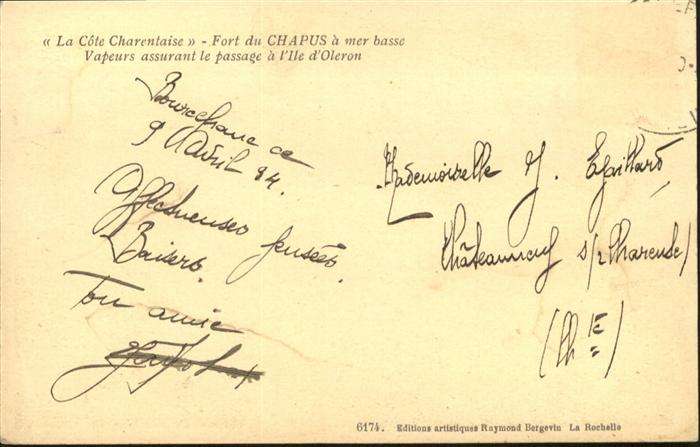 « La Côte Charentaise » - Fort du CHAPUS à mer basse
Vapeurs assurant le passage à l'Ile d'Oleron
Bourcefranc ce
9 Avril 24.
Affectueuses pensées
Baisers.
Ton amie
Mademoiselle J. Gaillard
Châteauneuf s/ Charente
(Ch te)
6174. Editions artistiques Raymond Bergevin La Rochelle